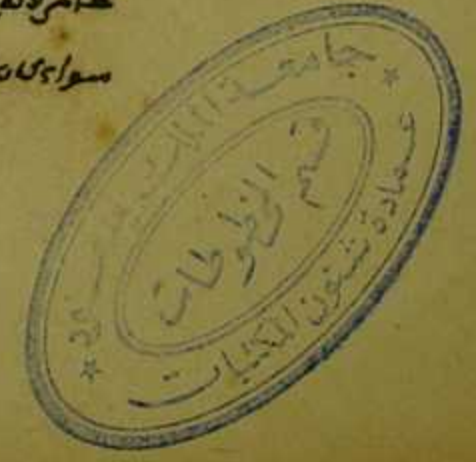 سواء كان
جامعة الملك سعود
قسم المخطوطات
عمادة شئون المكتبات